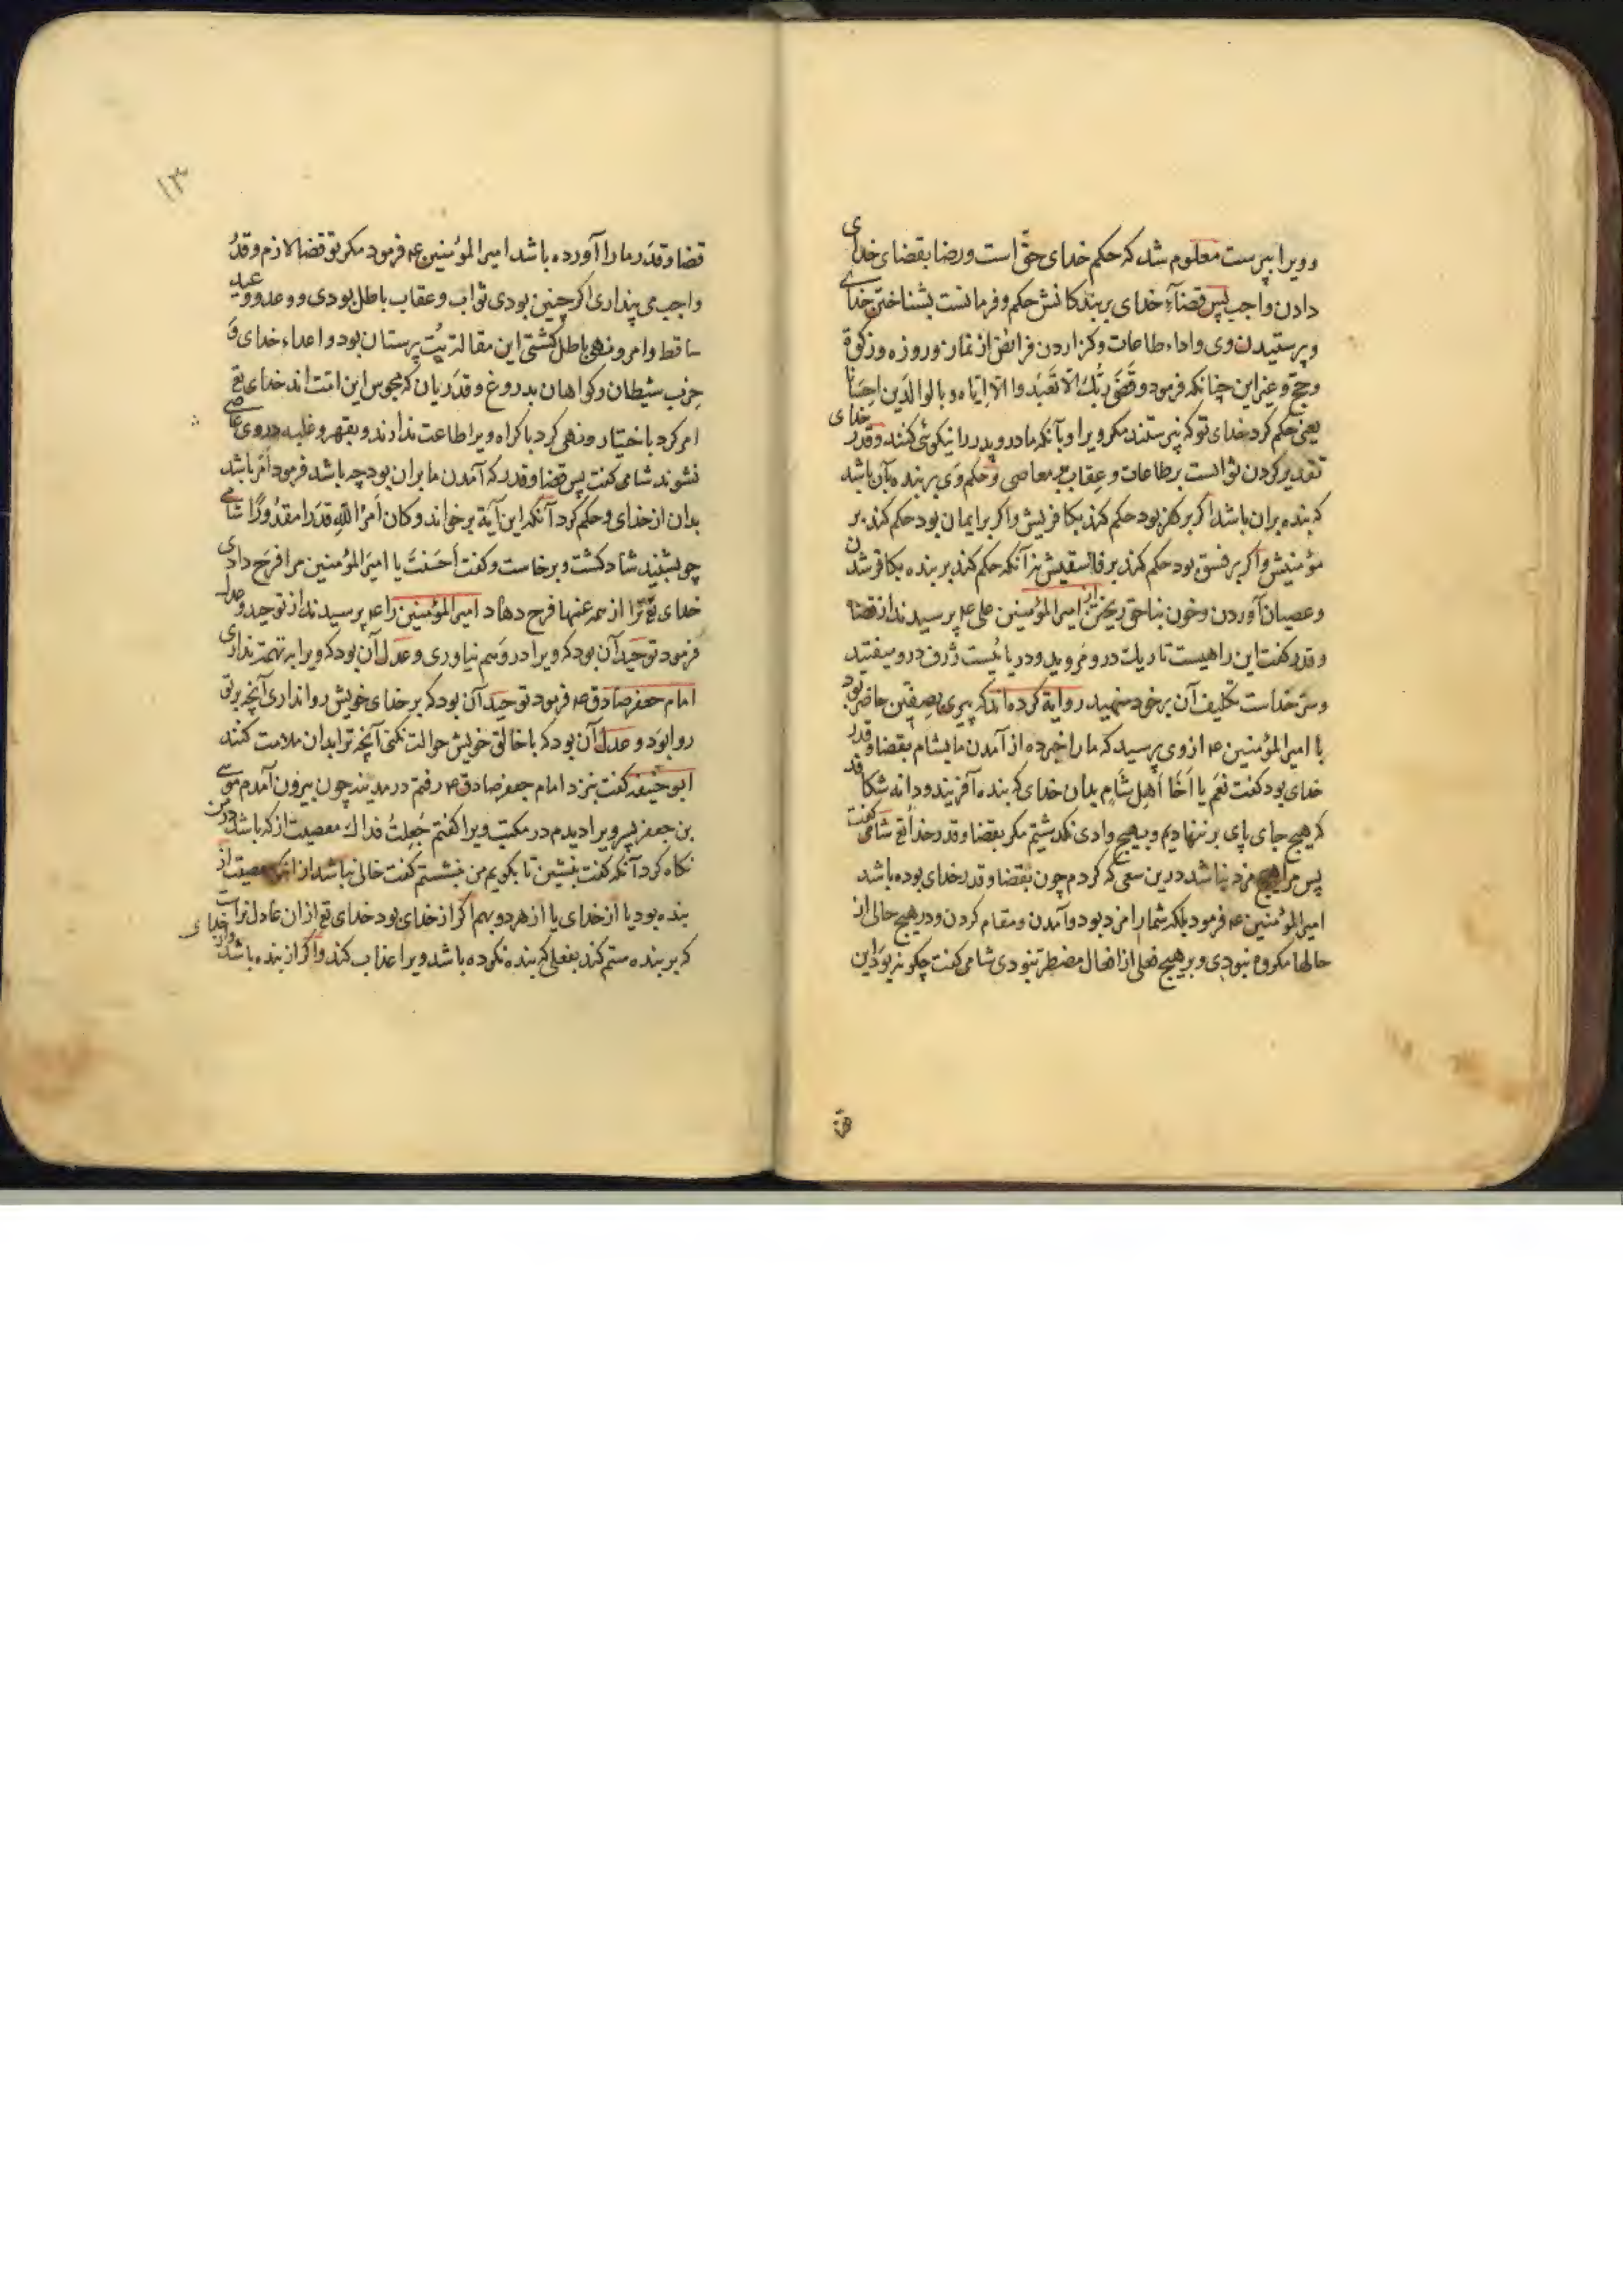 و ویرا بپرست معلوم شد که حکم خدای حقّ است و رضا بقضای خدای
دادن واجب پس قضآءِ خدای بر بندکانش حکم و فرمانست بشناختن خدای
و پرستیدن وی و اداء طاعات و کزاردن فرائض از نماز و روزه و زکوة
و حجّ و غیر این چنانکه فرمود و قَضَی رَبُّکَ اَلّا تَعْبُدوا اِلّا اِیّاه و بالوالدَین اِحسانا
یعنی حکم کرد خدای تو که نپرستند مکر ویرا و بآنکه مادر و پدر را نیکوئی کنند و قدر خدای
تقدیر کردن ثوابست بر طاعات و عِقاب بر معاصی و حکم وَی بر بنده بآن باشد
که بنده بران باشد اکر بر کفر بود حکم کند بکافریش و اکر بر ایمان بود حکم کند بر
مؤمنیش و اکر بر فسق بود حکم کند بر فاسقیش نه آنکه حکم کند بر بنده بکافر شدن
و عصیان آوردن و خون بناحق ریختن از امیرالمؤمنین علی ع‍ پرسیدند از قضا
و قدر کفت این راهیست تاریک درو مَروید و دریائیست ژرف درو میفتید
و سرّ خداست تکلیف آن بر خود منهید روایة کرده‌اند که پیری بصِفّین حاضر بود
با امیرالمؤمنین ع‍ از وی پرسید که ما را خبر ده از آمدن ما بشام بقضا و قدر
خدای بود کفت نَعَم یا اَخَا اَهلِ شَامٍ بدان خدای که بنده آفریند و دانه شکافد
که هیچ جای پای بر ننهادیم و بهیچ وادی نکذشتیم مکر بقضا و قدر خدا تع شامی کفت
پس مرا هیچ مزد نباشد درین سعی که کردم چون بقضا و قدر خدای بوده باشد
امیرالمؤمنین ع‍ فرمود بلکه شما را مزد بود و آمدن و مقام کردن و در هیچ حالی از
حالها مکروه نبودی و بر هیچ فعلی از افعال مضطر نبودی شامی کفت چکونه بوَد این
۱۳
قضا و قدَر ما را آورده باشد امیرالمؤمنین ع‍ فرمود مکر تو قضا لازم و قدَر
واجب می پنداری اکر چنین بودی ثواب و عقاب باطل بودی و وعد و وعید
ساقط و امر و نهی باطل کشتی این مقالة بُت پرستان بود و اعداء خدای و
حِزب شیطان و کواهان بدروغ و قدَریان که مجوس این امّت اند خدای تع
امر کرد باختیار و نهی کرد باکراه ویرا طاعت ندارند و بقهر و غلبه در وی عاصی
نشوند شامی کفت پس قضا و قدر که آمدن ما بران بود چه باشد فرمود اَمر باشد
بدان از خدای و حکم کرد آنکه این آیة برخواند و کان اَمرُ اللّهِ قَدَرا مقدُورًا شامی
چو بشنید شاد کشت و برخاست و کفت اَحسَنتَ یا امیرَ المؤمنین مرا فرَح دادی
خدای تع ترا از همه غمها فرح دهاد امیرالمؤمنین را ع‍ پرسیدند از توحید و عدل
فرمود توحید آن بود که ویرا در وَهم نیاوری و عدل آن بود که ویرا بر تهمة نداری
امام جعفر صادق ع‍ فرمود توحید آن بود که بر خدای خویش روا نداری آنچه بر تو
روا بوَد و عدل آن بود که با خالق خویش حوالت نکنی آنچه ترا بدان ملامت کنند
ابو حنیفه کفت بنزد امام جعفر صادق ع‍ رفتم در مدینه چون بیرون آمدم موسی
بن جعفر پسر ویرا دیدم در مکتب ویرا کفتم جُعِلتُ فداک معصیت از که باشد در من
نکاه کرد آنکه کفت بنشین تا بکویم من بنشستم کفت خالی نباشد از آنکه معصیت از
بنده بود یا از خدای یا از هر دو بهم اکر از خدای بود خدای تع از ان عادل‌تر است
که بر بنده ستم کند بفعلی که بنده نکرده باشد ویرا عذاب کند و اکر از بنده باشد